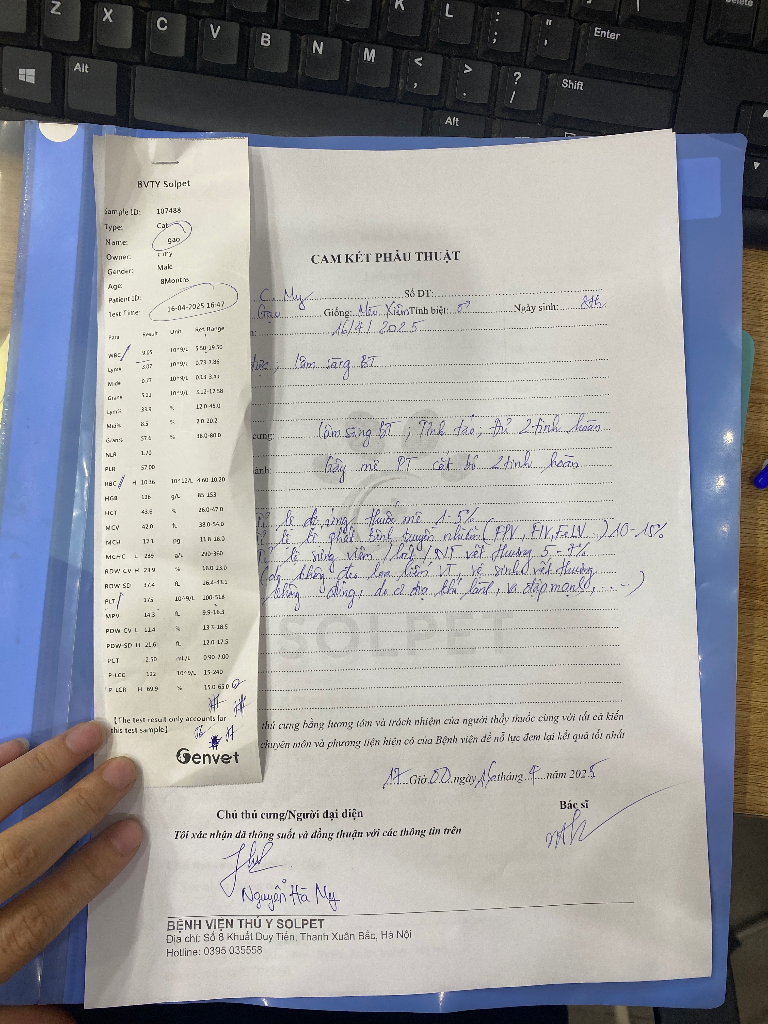 Z X C V B N M K L : ; " ' Enter Delete
Alt < , > . ? / Shift
Alt
BVTY Solpet
Sample ID: 107488
Type: Cat
Name: gao
Owner:
Gender: Male
Age: 8Months
Patient ID:
Test Time: 16-04-2025 16:47
Para Result Unit Ref.Range
WBC 10^9/L 5.50-19.50
Lym# 3.07 10^9/L 0.73-7.86
Mid# 0.77 10^9/L
Gran# 10^9/L
Lym% % 12.0-45.0
Mid% 8.5 % 2.0-20.2
Gran% 57.6 % 38.0-80.0
NLR 1.70
PLR 57.00
RBC H 10.36 10^12/L 4.60-10.20
HGB 136 g/L 85-153
HCT 43.6 % 26.0-47.0
MCV 42.0 fL 38.0-54.0
MCH 13.1 pg 11.8-18.0
MCHC L g/L 290-360
RDW-CV H 23.9 % 16.0-23.0
RDW-SD fL
PLT 175 10^9/L 100-518
MPV 14.3 fL 9.9-16.3
PDW-CV L %
PDW-SD H 21.6 fL 12.0-17.5
PCT 2.50 mL/L 0.90-7.00
P-LCC 122 10^9/L 15-240
P-LCR H 69.9 % 15.0-65.0
[The test result only accounts for
this test sample]
Genvet
CAM KẾT PHẪU THUẬT
C. My Số DT:
Gạo Giống: Mèo Xiêm Tính biệt: ♂ Ngày sinh: 8th
16/4/2025
lâm sàng BT
lâm sàng BT; Tỉnh táo; Đủ 2 tinh hoàn
Gây mê PT cắt bỏ 2 tinh hoàn
lệ dị ứng thuốc mê 1-5%
lệ phát bệnh truyền nhiễm (FPV, FIV, FeLV...) 10-15%
lệ viêm vết thương 5-7%
không đeo loa liếm VT, vệ sinh vết thương
không đúng, do cơ địa khó lành, va đập mạnh, ....)
SOLPET
thú cưng bằng lương tâm và trách nhiệm của người thầy thuốc cùng với tất cả kiến
chuyên môn và phương tiện hiện có của Bệnh viện để nỗ lực đem lại kết quả tốt nhất
17 Giờ 00 ngày 16 tháng 4 năm 2025
Chủ thú cưng/Người đại diện Bác sĩ
Tôi xác nhận đã thông suốt và đồng thuận với các thông tin trên
Nguyễn Hà My
BỆNH VIỆN THÚ Y SOLPET
Địa chỉ: Số 8 Khuất Duy Tiến, Thanh Xuân Bắc, Hà Nội
Hotline: 0395 035558